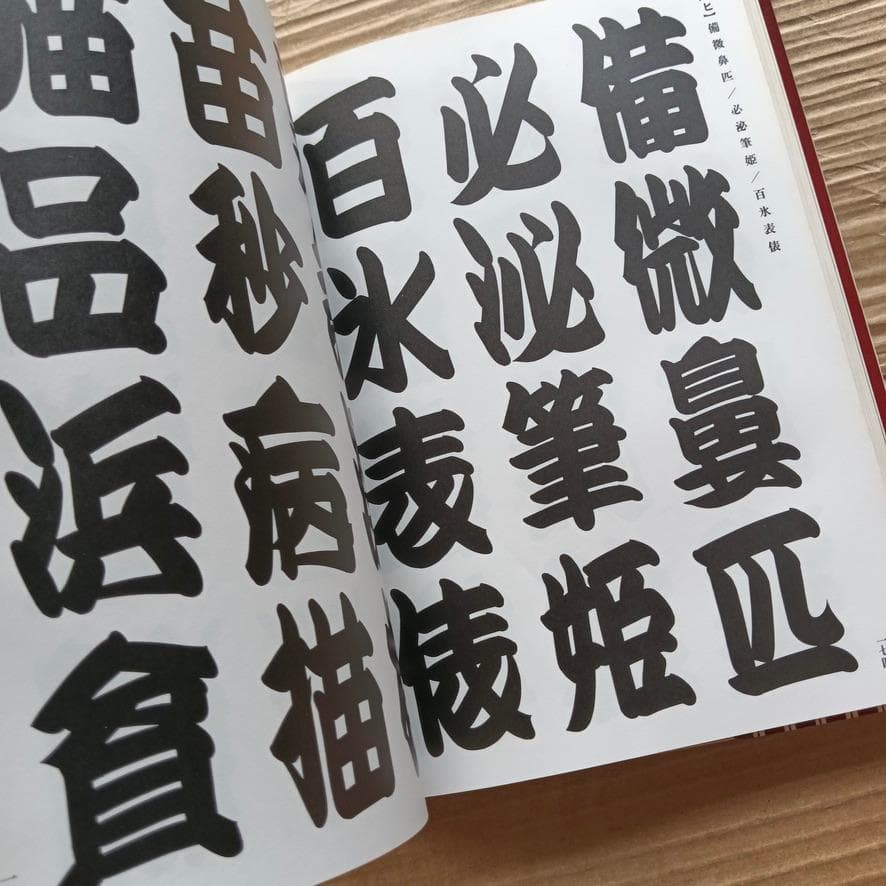 ヒ】備微鼻匹／必泌筆姫／百氷表俵
備微鼻匹
必泌筆姫
百氷表俵
苗秒病描
猫品浜貧